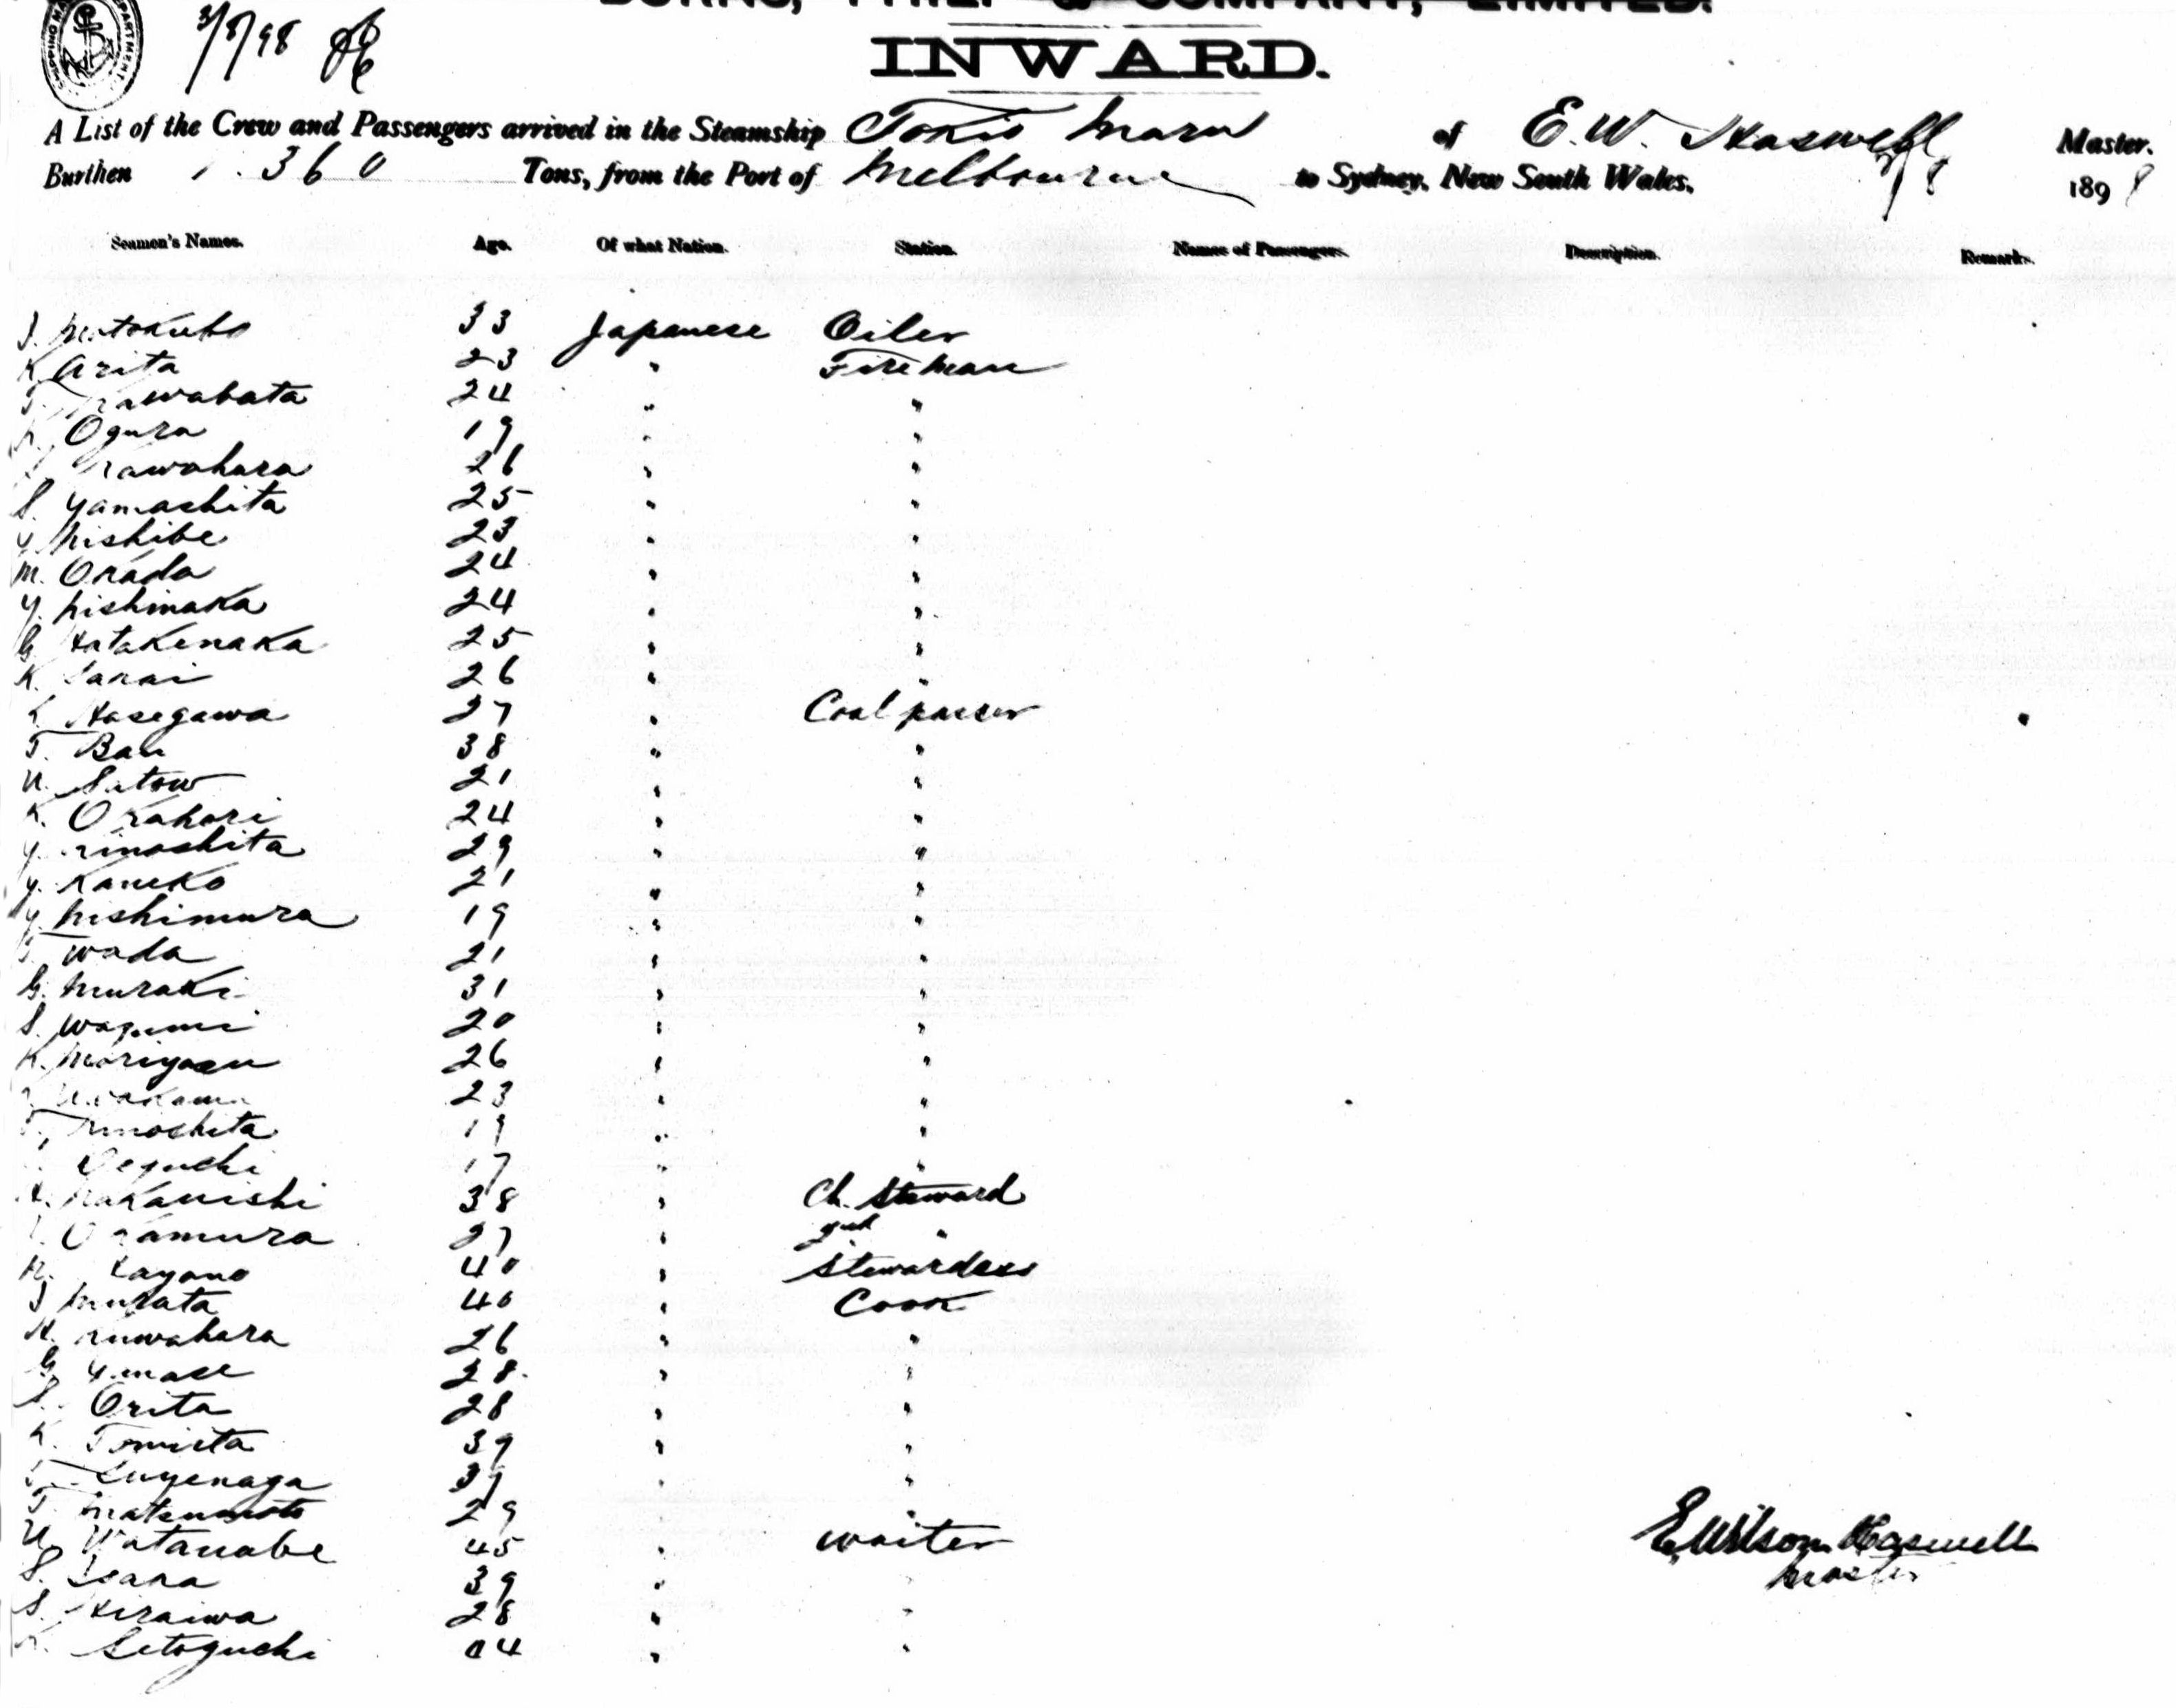 BURNS, PHILP & COMPANY, LIMITED.
INWARD.
SHIPPING DEPARTMENT
3/8/98
A List of the Crew and Passengers arrived in the Steamship Tokio Maru of E. W. Haswell Master.
Burthen 1.360 Tons, from the Port of Melbourne to Sydney, New South Wales, 1898
Seamen's Names. Age. Of what Nation. Station. Names of Passengers. Description. Remarks.
33 Japanese Oiler
K Arita 23 " Fireman
T. Kawabata 24 " "
K. Ogura 19 " "
Kawahara 26 " "
S. Yamashita 25 " "
Y Nishibe 23 " "
M. Okada 24 " "
Y. Nishinaka 24 " "
G Hatakenaka 25 " "
K. Sakai 26 " "
K Hasegawa 27 " Coal passer
T. Ban 38 " "
U. Satow 21 " "
K. Okahori 24 " "
Y. Kinoshita 29 " "
Y. Kaneko 21 " "
Y. Nishimura 19 " "
T. Wada 21 " "
G. Muraki 31 " "
S. Wagumi 20 " "
K. Moriyasu 26 " "
23 " "
T. Kinoshita 19 " "
17 " "
Nakanishi 38 " Ch. Steward
Okamura 27 " 2nd "
Kayano 40 " Stewardess
Murata 40 " Cook
K. Kuwahara 26 " "
G 28 " "
S. Orita 28 " "
K. Tomita 39 " "
T. Suyenaga 37 " "
T. Matsumoto 29 " "
U. Watanabe 45 " Waiter
S. 39 " "
S. Hiraiwa 28 " "
K. Setoguchi 24 " "
E. Wilson Haswell
Master